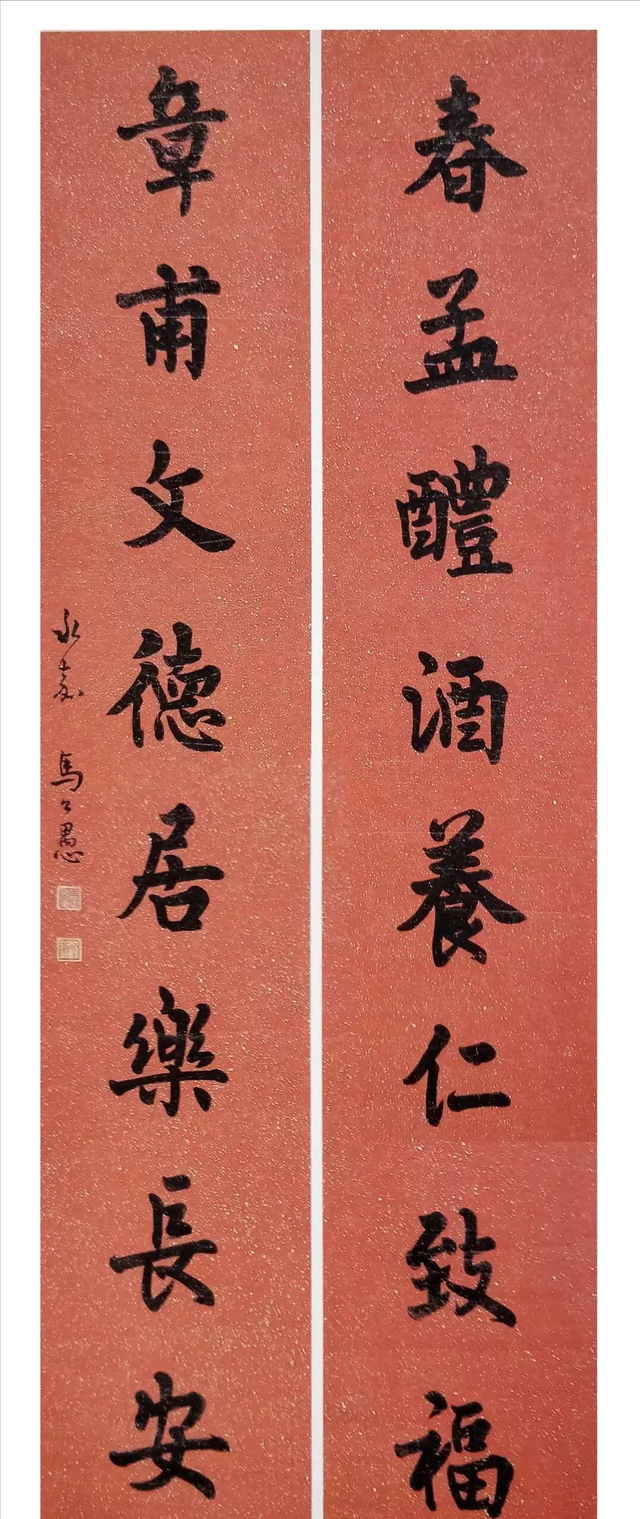 春孟醴酒養仁致福
章甫文德居樂長安
永嘉馬公愚